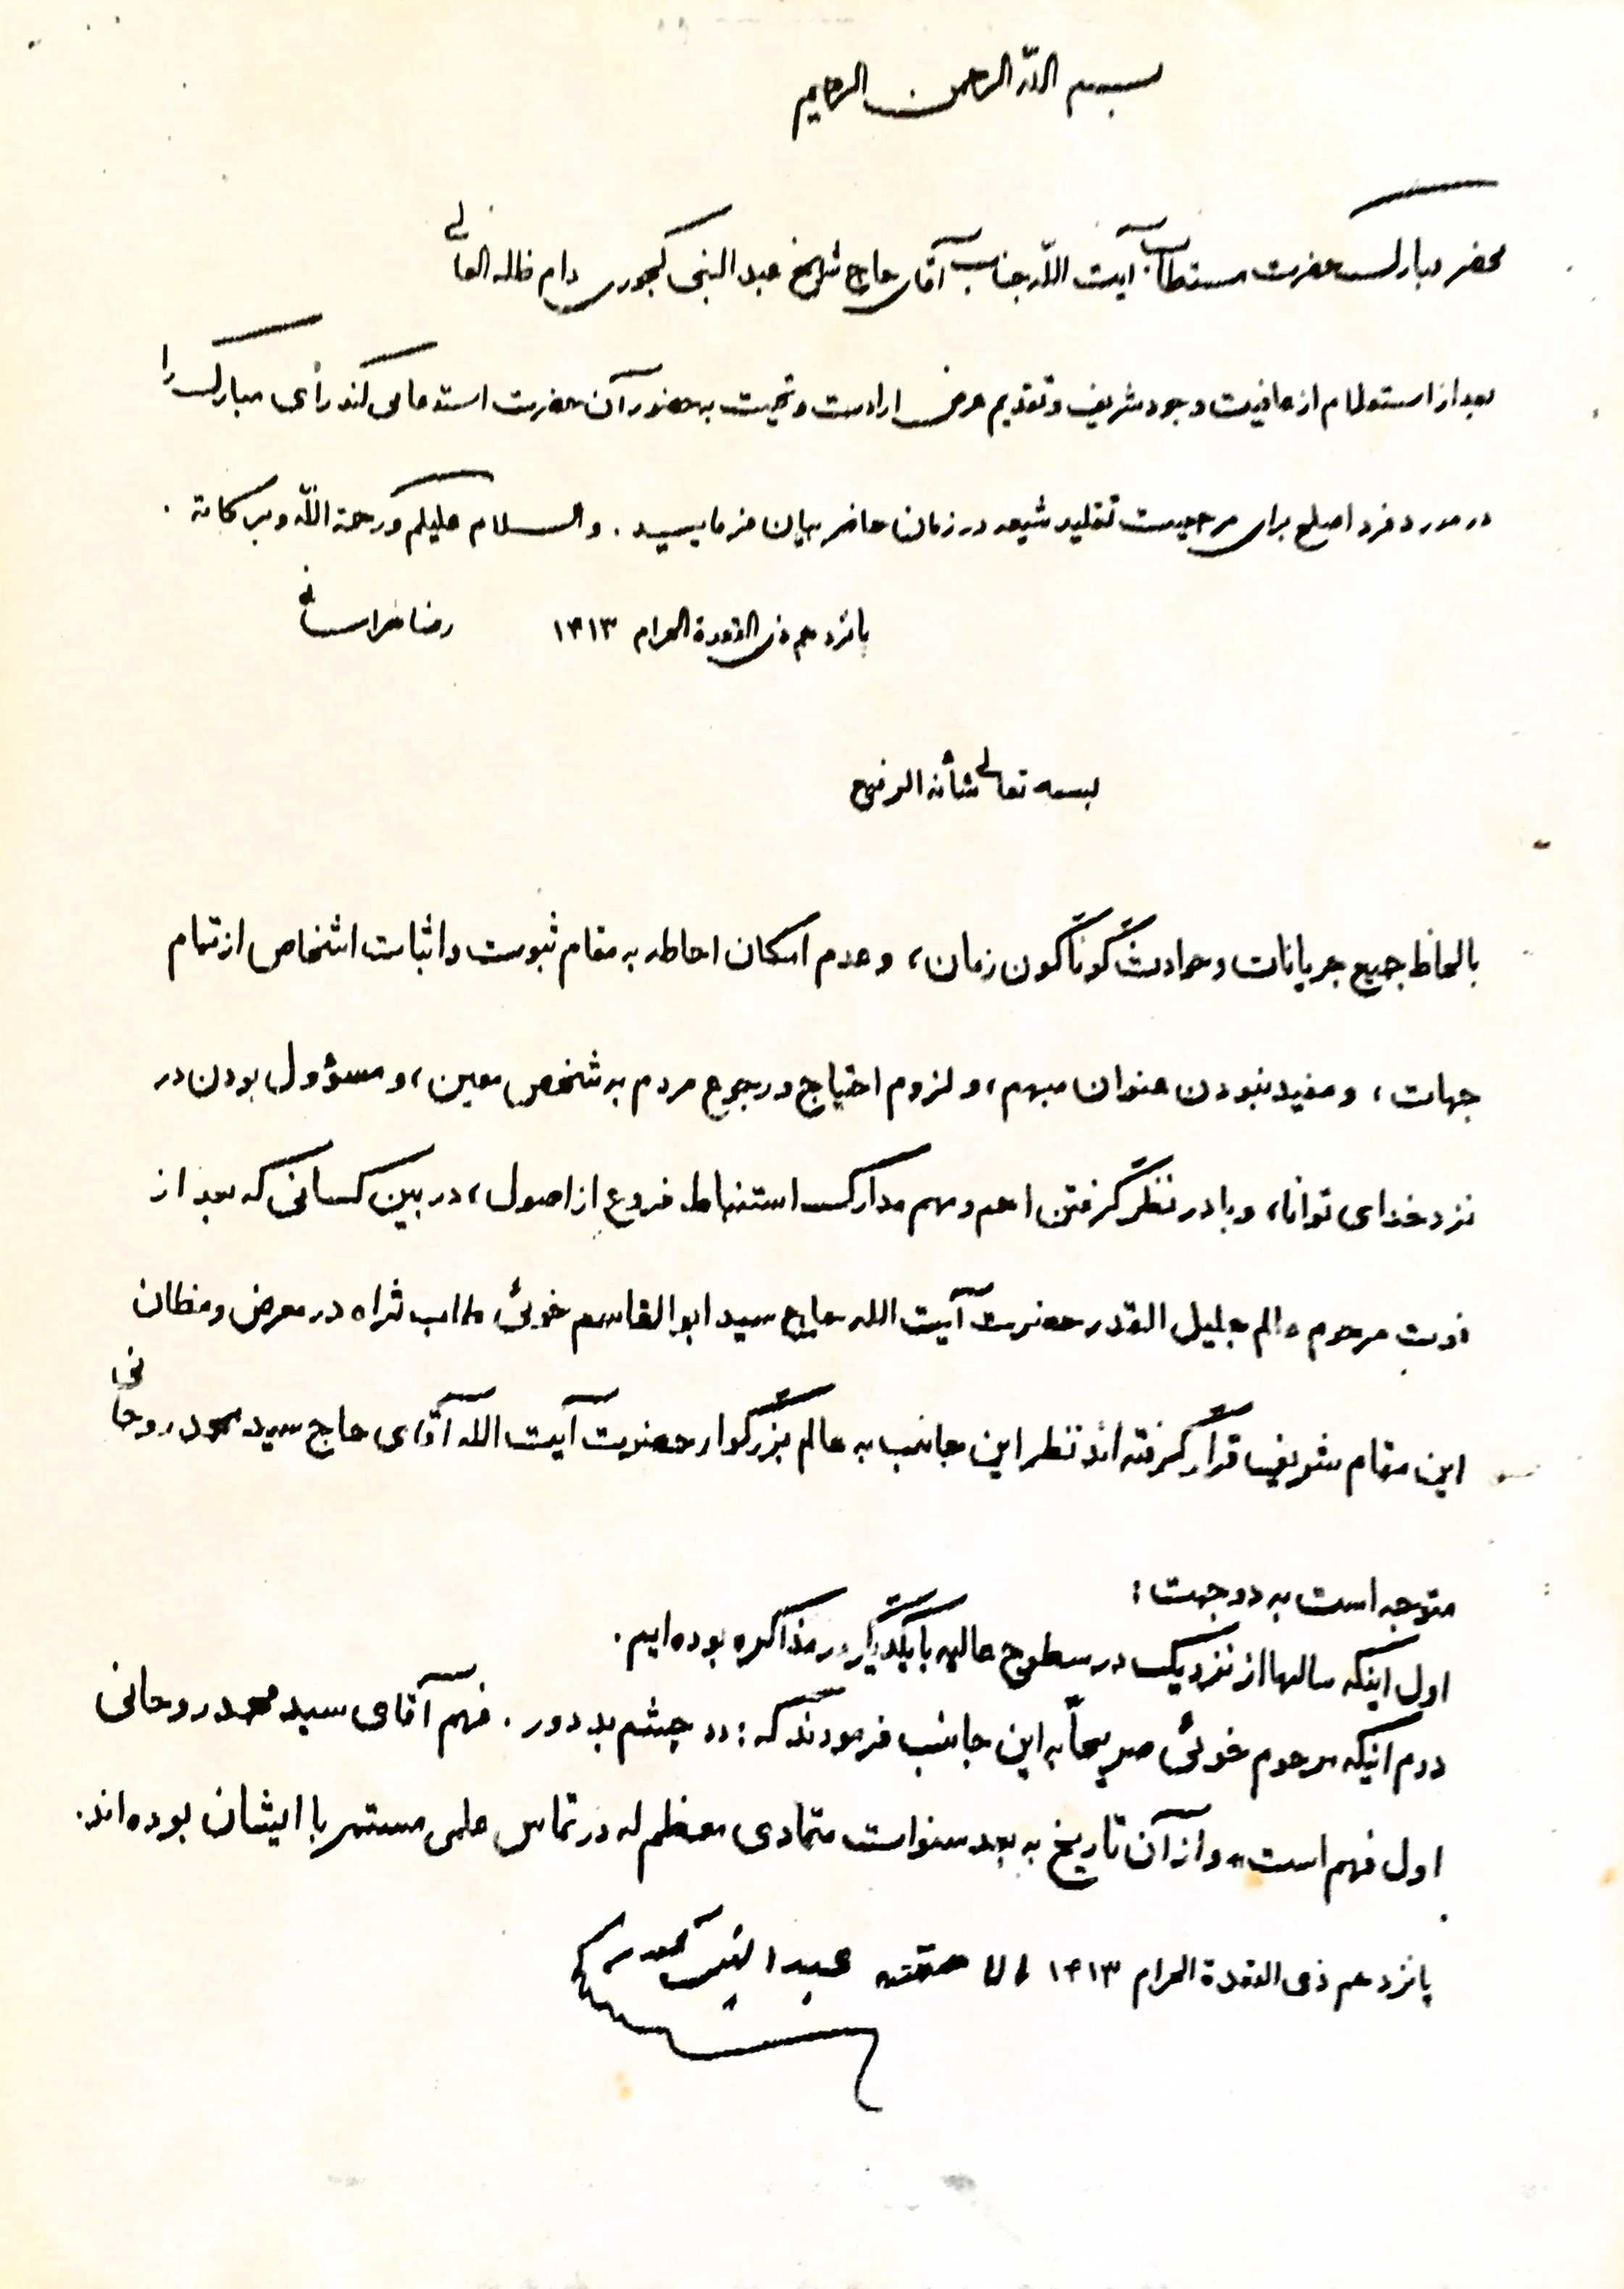 بسم الله الرحمن الرحیم
محضر مبارک حضرت مستطاب آیت الله جناب آقای حاج شیخ عبد النبی کجوری دام ظله العالی
بعد از استعلام از عافیت وجود شریف و تقدیم عرض ارادت و تحیت به حضور آن حضرت استدعا می کند رأی مبارک را
در مورد فرد اصلح برای مرجعیت تقلید شیعه در زمان حاضر بیان فرمایید . والسلام علیکم ورحمة الله وبرکاته .
پانزدهم ذی القعدة الحرام ۱۴۱۳ رضا خراسانی
بسمه تعالی شأنه الرفیع
بالحاظ جمیع جریانات و حوادث گوناگون زمان، و عدم امکان احاطه به مقام ثبوت و اثبات اشخاص از تمام
جهات، و مفید نبودن عنوان مبهم، و لزوم احتیاج و رجوع مردم به شخص معین، و مسؤول بودن در
نزد خدای توانا، و با در نظر گرفتن اهم و مهم مدارک استنباط فروع از اصول، در بین کسانی که بعد از
فوت مرحوم عالم جلیل القدر حضرت آیت الله حاج سید ابوالقاسم خوئی طاب ثراه در معرض و مظان
این مقام شریف قرار گرفته اند نظر این جانب به عالم بزرگوار حضرت آیت الله آقای حاج سید محمد روحانی
متوجه است به دو جهت :
اول اینکه سالها از نزدیک در سطوح عالیه با یکدیگر در مذاکره بوده ایم .
دوم اینکه مرحوم خوئی صریحاً به این جانب فرمودند که : «چشم بد دور . فهم آقای سید محمد روحانی
اول فهم است» و از آن تاریخ به بعد سنوات متمادی معظم له در تماس علمی مستمر با ایشان بوده اند.
پانزدهم ذی القعدة الحرام ۱۴۱۳ عبد النبی کجوری